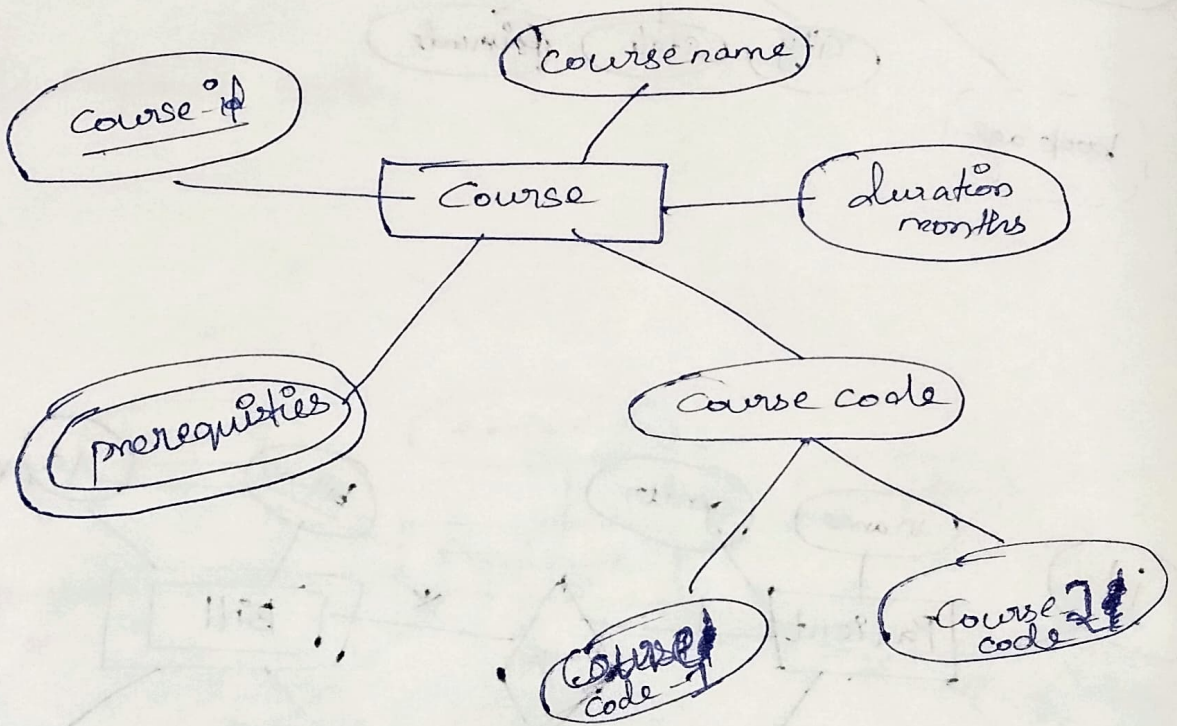 Coursename
Course-id
Course
duration
months
prerequisties
Course code
Course
code-1
Course-2
code
Bill